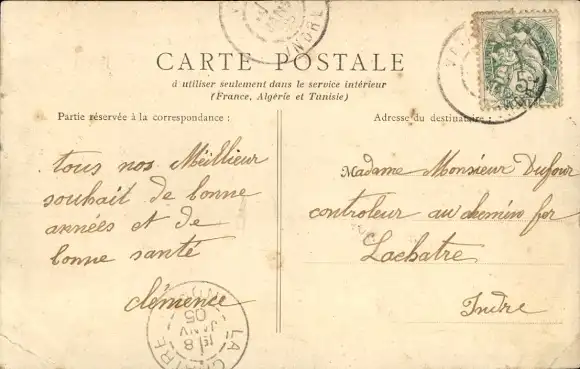 INDRE
CARTE POSTALE
à utiliser seulement dans le service intérieur
(France, Algérie et Tunisie)
Partie réservée à la correspondance :
Adresse du destinataire :
5
POSTES
tous nos Méillieur
souhait de bonne
années et de
bonne santé
clémence
Madame Monsieur Dufour
controleur au chemin fer
Lachatre
Indre
LA CHATRE
8
JANV
05
INDRE